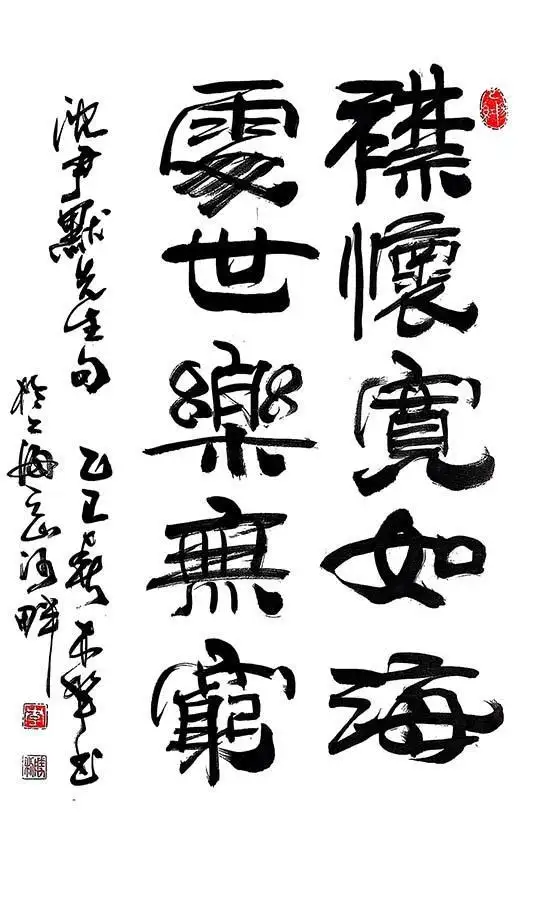 襟懷寬如海
處世樂無窮
沈尹默先生句 乙巳春 木犁书
於上海河畔